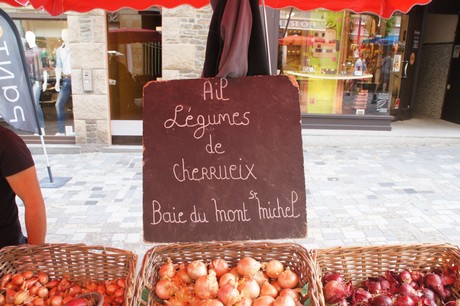 Ail
Légumes
de
Cherrueix
Baie du Mont St Michel